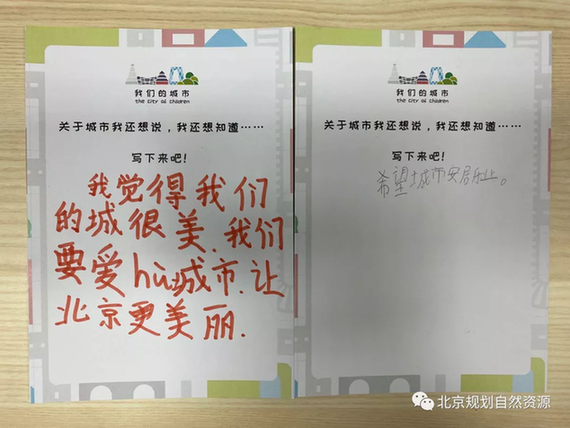 我们的城市
the city of children
关于城市我还想说，我还想知道……
写下来吧！
我觉得我们
的城很美.我们
要爱hù城市.让
北京更美丽.
我们的城市
the city of children
关于城市我还想说，我还想知道……
写下来吧！
希望城市安居乐业。
北京规划自然资源